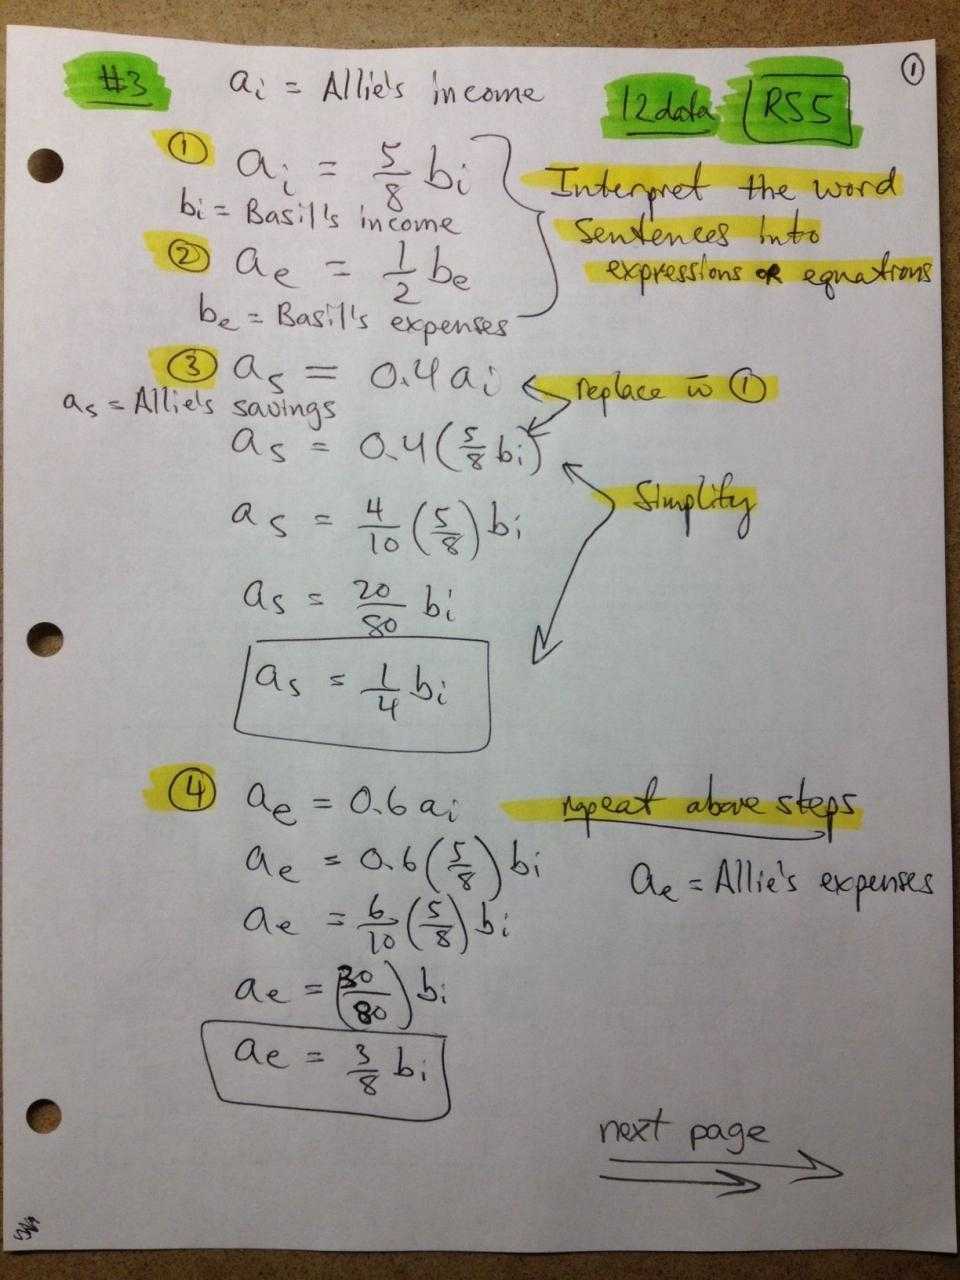 ①
#3 a_i = Allie's income 12data RS5
① a_i = 5/8 b_i Interpret the word
b_i = Basil's income sentences into
② a_e = 1/2 b_e expressions or equations
b_e = Basil's expenses
③ a_s = 0.4 a_i replace w ①
a_s = Allie's savings
a_s = 0.4 (5/8 b_i)
Simplify
a_s = 4/10 (5/8) b_i
a_s = 20/80 b_i
a_s = 1/4 b_i
④ a_e = 0.6 a_i repeat above steps
a_e = 0.6 (5/8) b_i a_e = Allie's expenses
a_e = 6/10 (5/8) b_i
a_e = (30/80) b_i
a_e = 3/8 b_i
next page